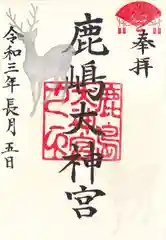 奉拝
鹿嶋大神宮
令和三年長月五日